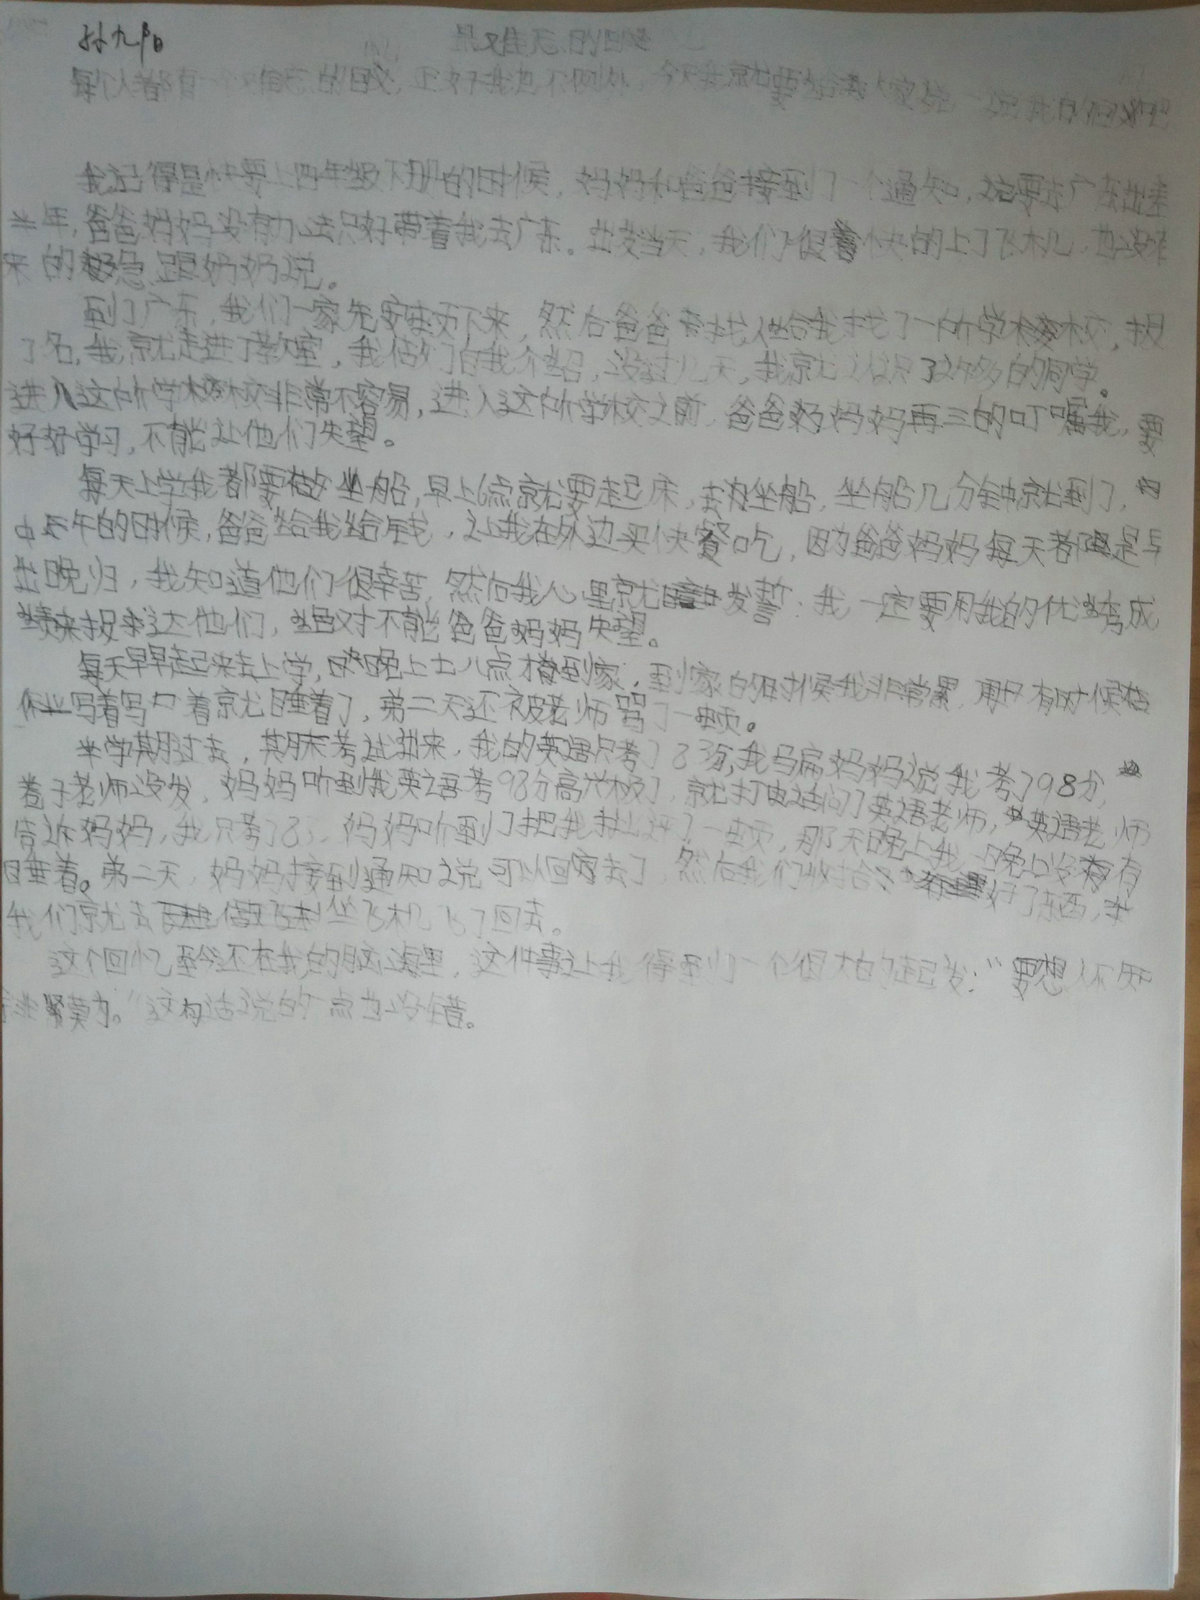 孙九阳 最难忘的回忆
每个人都有一个难忘的回忆,还好我也不例外,今天我就要给大家说一说我的回忆吧
我记得是快要上四年级下册的时候,妈妈和爸爸接到了一个通知,说要去广东出差
半年,爸爸妈妈没有办法只好带着我去广东。出发当天,我们很快的上了飞机,也没
的急跟妈妈说。
到了广东,我们一家先安顿下来,然后爸爸找人给我找了一所学校,报
了名,我就走进了教室,我做们自我介绍,没过几天,我就认识了许多的同学。
进入这所学校非常不容易,进入这所学校之前,爸爸妈妈再三的叮嘱我,要
好好学习,不能让他们失望。
每天上学我都要坐船,早上6点就要起床,去坐船,坐船几分钟就到了,
中午的时候,爸爸给我给钱,让我在外边买快餐吃,因为爸爸妈妈每天都是早
出晚归,我知道他们很辛苦,然后我心里就发誓:我一定要用我的优秀成
绩来报达他们,绝对不能爸爸妈妈失望。
每天早早起来去上学,晚上七八点才到家,到家的时候我非常累,有时候在
作业写着写着就睡着了,第二天还被老师骂了一顿。
半学期过去,期末考试到来,我的英语只考了23分,我骗妈妈说我考了98分,
卷子老师没发,妈妈听到我英语考98分高兴极了,就打电话问了英语老师,英语老师
告诉妈妈,我只考了23,妈妈听到了把我批评了一顿,那天晚上我一晚上没有
睡着。第二天,妈妈接到通知说可以回家去了,然后我们收拾好了东西,
我们就去坐飞机飞了回去。
这个回忆至今还在我的脑海里,这件事让我得到了一个很大的启发:“要想人不知
非莫为。”这句话说的一点也没错。